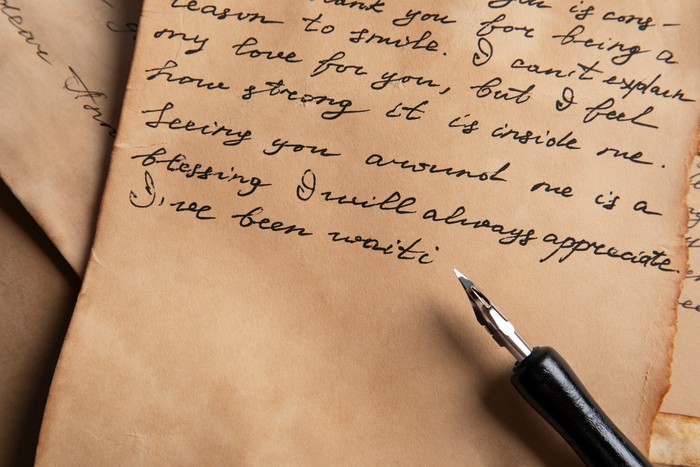 thank you for you is cons-
reason to smile. for being a
my love for you, I can't explain
how strong it but I feel
is inside me.
Seeing you around me is a
blessing I will always appreciate.
I've been waiti
dear Ann